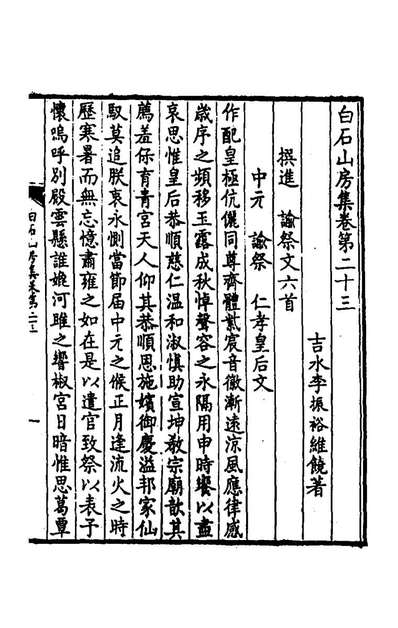 白石山房集卷第二十三
吉水李振裕維饒著
撰進　諭祭文六首
中元　諭祭　仁孝皇后文
作配皇極伉儷同尊齊體紫宸音徽漸遠涼風應律感
歲序之頻移玉露成秋悼聲容之永隔用申時饗以盡
哀思惟皇后恭順慈仁温和淑慎助宣坤教宗廟歆其
薦羞保育青宮天人仰其恭順恩施嬪御慶溢邦家仙
馭莫追朕衷永惻當節届中元之候正月逢流火之時
歷寒暑而無忘憶肅雍之如在是以遣官致祭以表予
懷嗚呼別殿雲懸誰嬎河雎之響椒宮日暗惟思葛覃
白石山房集卷第二十三
一